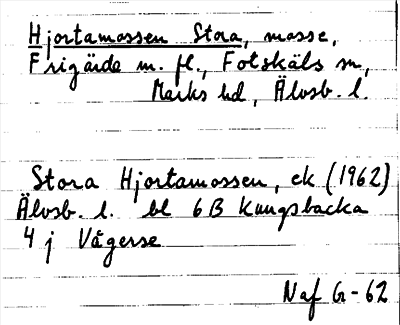 Hjortamossen Stora, mosse,
Frigärde m. fl., Fotskäls sn,
Marks hd, Älvsb. l.
Stora Hjortamossen, ek (1962)
Älvsb. l. bl 6B Kungsbacka
4 j Vågerse
Naf G-62